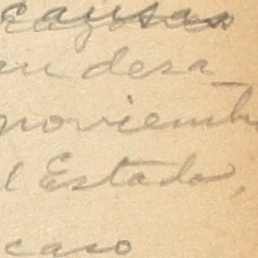 causas
an desa_
noviemb
l Estado,
caso